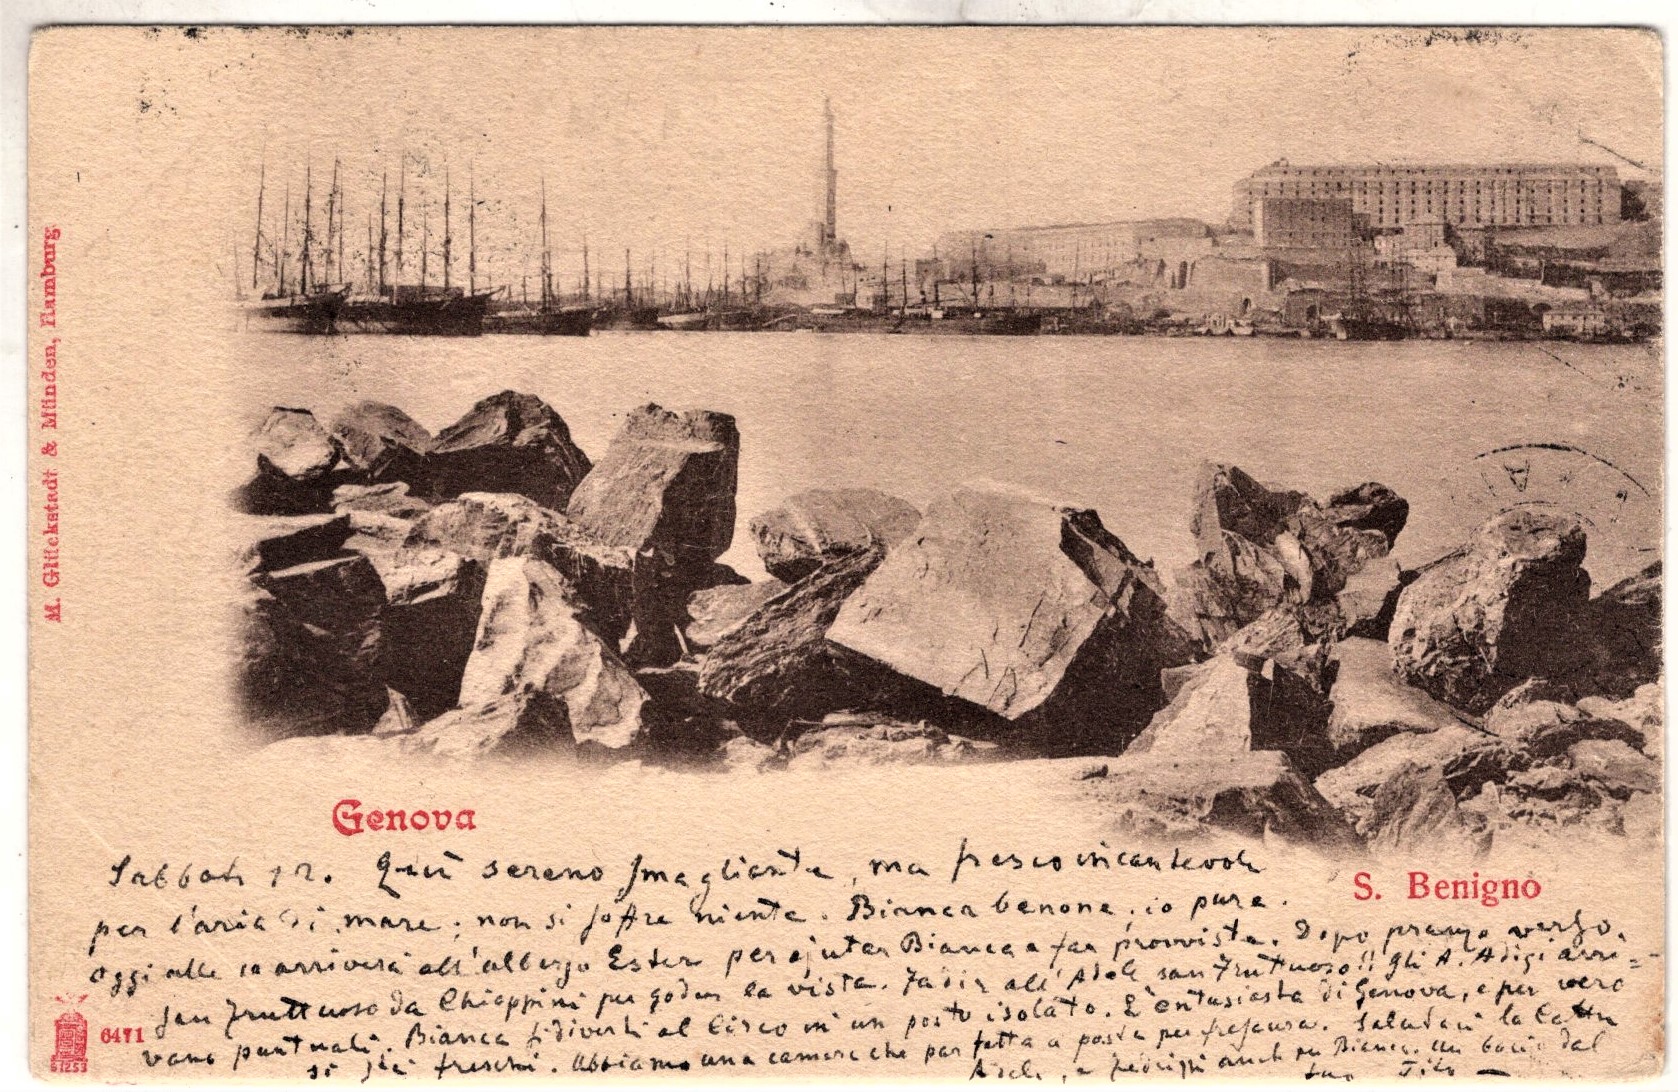 M. Glückstadt & Münden, Hamburg
Genova
S. Benigno
Sabbato 12. Quì sereno smagliante, ma fresco incantevole
per l'aria di mare; non si soffre niente. Bianca benone, io pure.
Oggi alle 10 arriverà all'albergo Ester per ajutar Bianca a far provviste. Dopo pranzo verso
San Fruttuoso da Chiappini per goder la vista. all' Adele San Fruttuoso!! Gli A. Adigi arri=
vano puntuali. Bianca si divertì al Circo in un posto isolato. È entusiasta di Genova, e per vero
si sta freschi. Abbiamo una camera che par fatta a posta per frescura. Salutari la
Adele, e anche per Bianca. Un bacio dal
tuo Tito
6471
61253